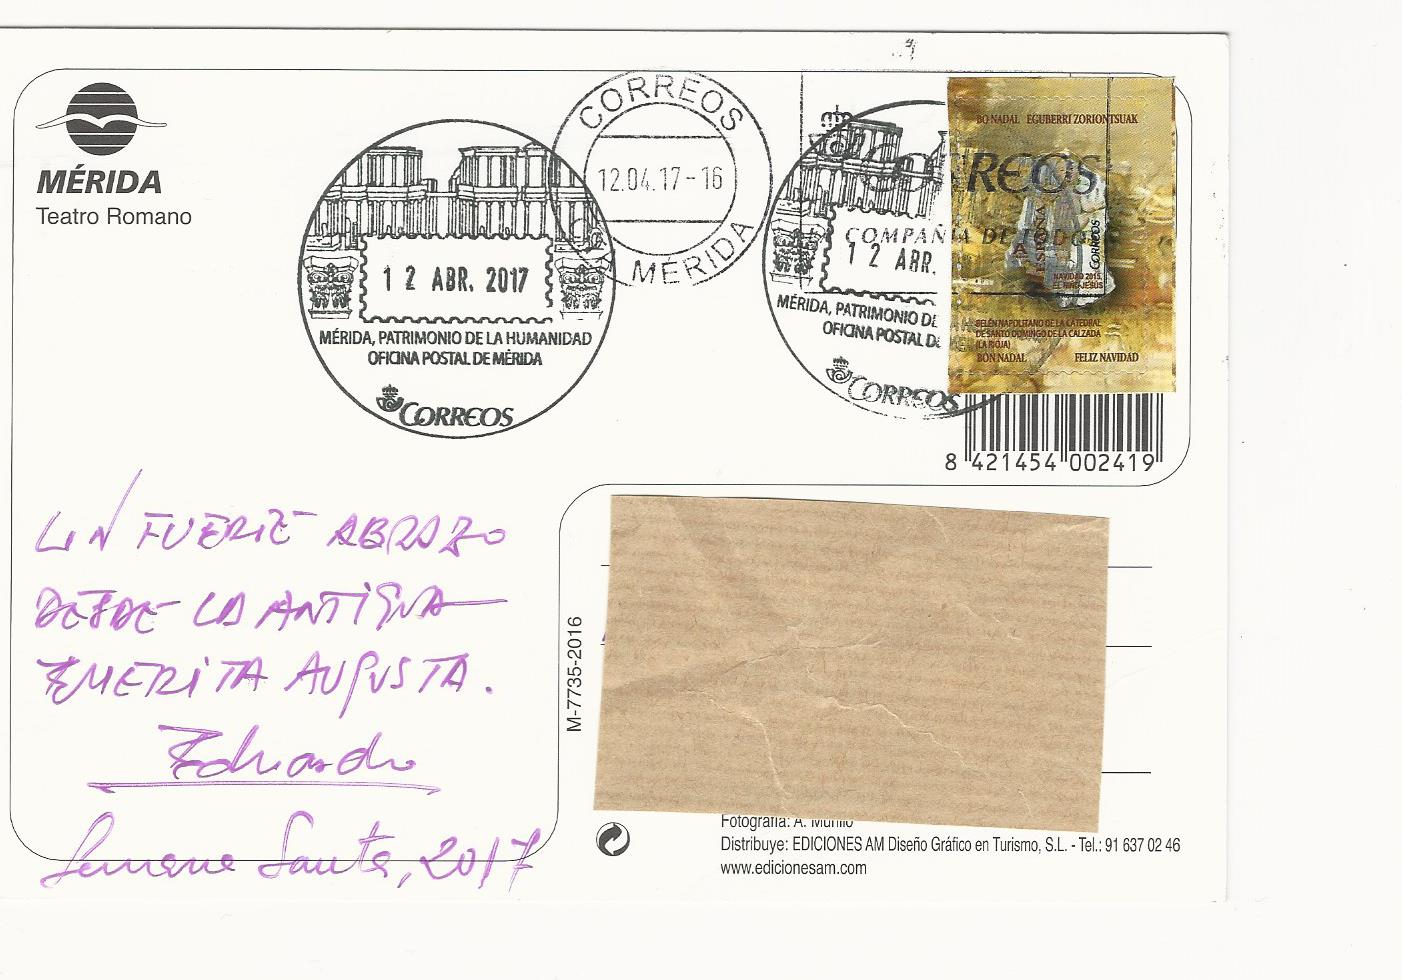 MÉRIDA
Teatro Romano
12 ABR. 2017
MÉRIDA, PATRIMONIO DE LA HUMANIDAD
OFICINA POSTAL DE MÉRIDA
CORREOS
CORREOS
12.04.17-16
MÉRIDA
12 ABR.
MÉRIDA, PATRIMONIO DE
OFICINA POSTAL DE
CORREOS
CORREOS
COMPAÑIA DE
BO NADAL EGUBERRI ZORIONTSUAK
ESPAÑA
CORREOS
NAVIDAD 2015.
EL NIÑO JESÚS
BELÉN NAPOLITANO DE LA CATEDRAL
DE SANTO DOMINGO DE LA CALZADA
(LA RIOJA)
BON NADAL FELIZ NAVIDAD
8 421454 002419
UN FUERTE ABRAZO
DESDE LA ANTIGUA
EMERITA AUGUSTA.
Eduardo
Semana Santa, 2017
M-7735-2016
Fotografía: A. Murillo
Distribuye: EDICIONES AM Diseño Gráfico en Turismo, S.L. - Tel.: 91 637 02 46
www.edicionesam.com